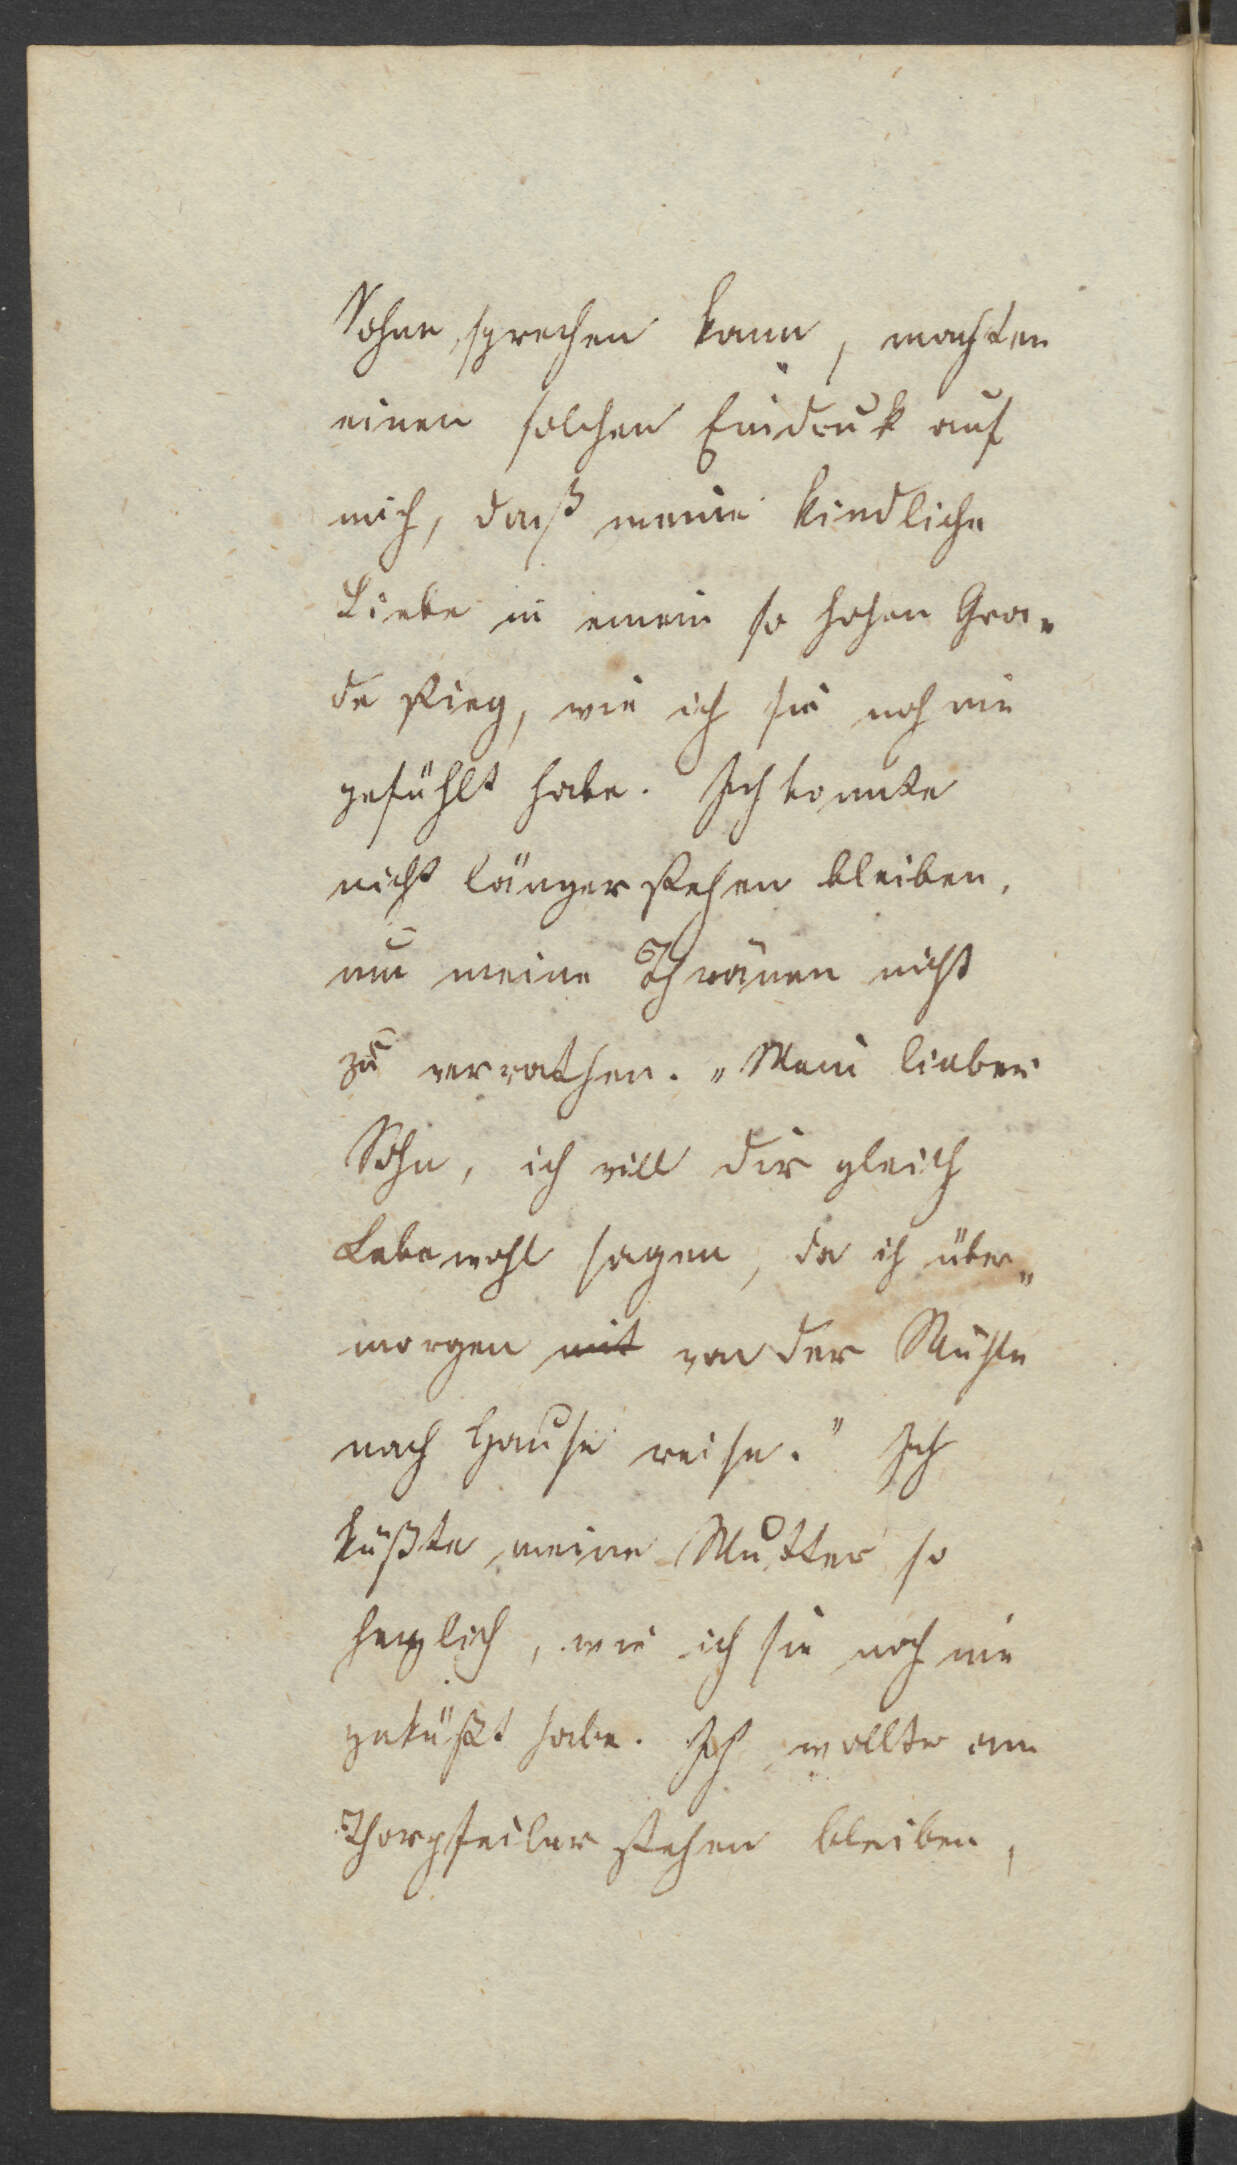 Sohne sprechen kann, machten
einen solchen Eindruk auf
mich, daß meine kindliche
Liebe in einem so hohen Gra-
de stieg, wie ich sie noch nie
gefühlt habe. Ich konnte
nicht länger stehen bleiben,
um meine Thränen nicht
zu verrathen. „Mein lieber
Sohn, ich will dir gleich
Lebewohl sagen, da ich über„
morgen mit von der Mühle
nach Hause reise." Ich
küßte meine Mutter so
herzlich, wie ich sie noch nie
geküßt habe. Ich wollte am
Thorpfeiler stehen bleiben,